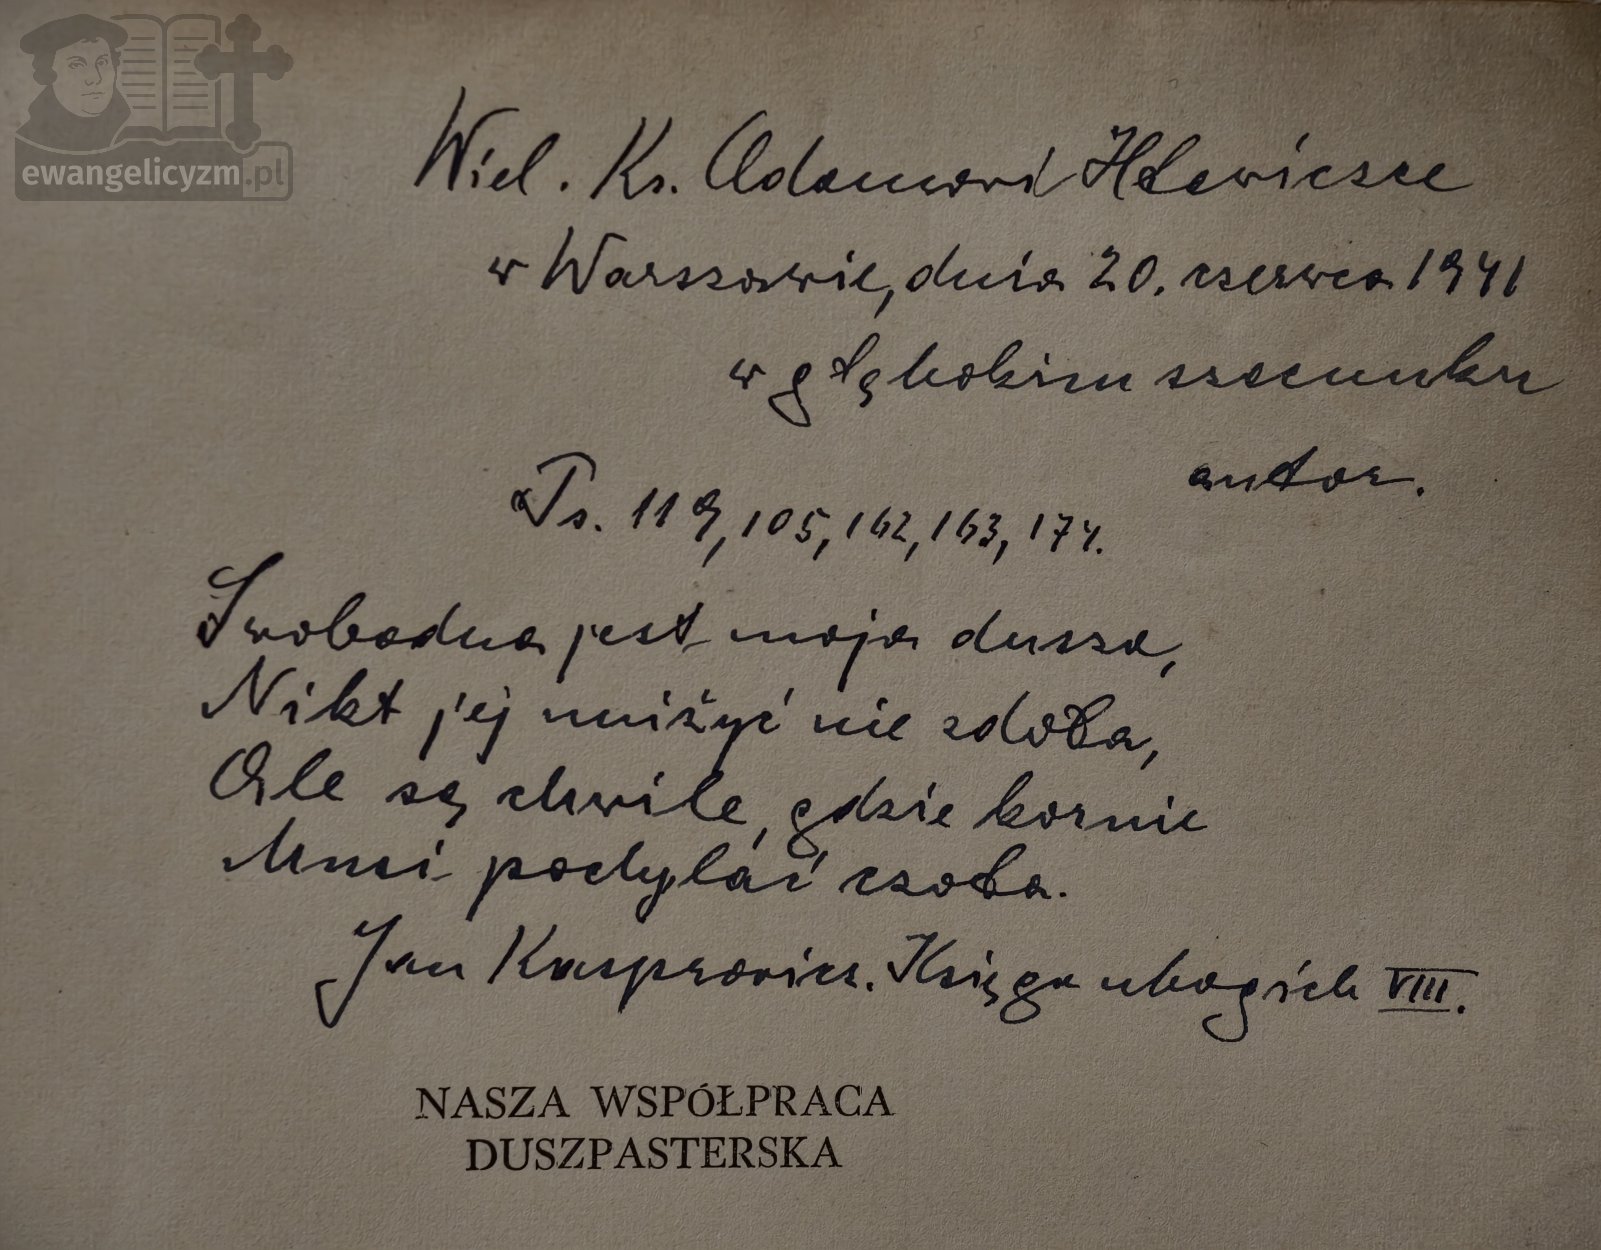 ewangelicyzm.pl
Wiel. Ks. Adamowi Hławiczce
w Warszawie, dnia 20. czerwca 1941
w głębokim szacunku
autor.
Ps. 119, 105, 162, 163, 174.
Swobodna jest moja dusza,
Nikt jej uniżyć nie zdoła,
Ale są chwile, gdzie kornie
Musi pochylać czoła.
Jan Kasprowicz. Księga ubogich VIII.
NASZA WSPÓŁPRACA
DUSZPASTERSKA